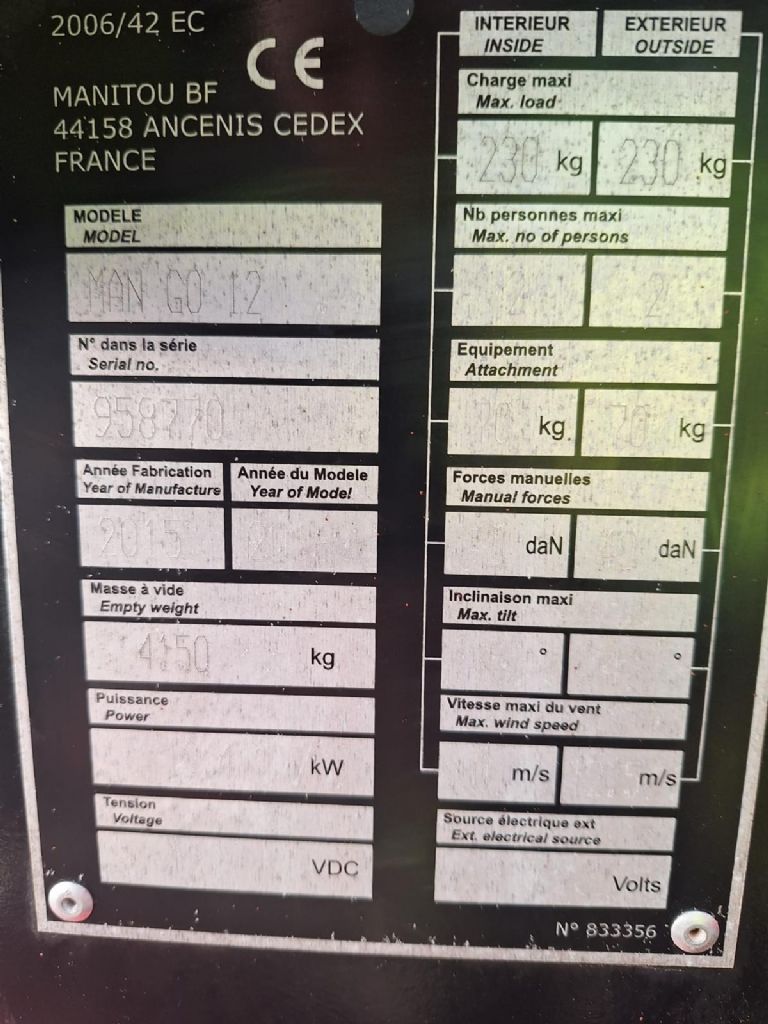 2006/42 EC
CE
MANITOU BF
44158 ANCENIS CEDEX
FRANCE
MODELE
MODEL
MAN GO 12
N° dans la série
Serial no.
958770
Année Fabrication
Year of Manufacture
Année du Modele
Year of Model
2015
Masse à vide
Empty weight
4150 kg
Puissance
Power
kW
Tension
Voltage
VDC
INTERIEUR
INSIDE
EXTERIEUR
OUTSIDE
Charge maxi
Max. load
230 kg 230 kg
Nb personnes maxi
Max. no of persons
2 2
Equipement
Attachment
kg 70 kg
Forces manuelles
Manual forces
daN daN
Inclinaison maxi
Max. tilt
° °
Vitesse maxi du vent
Max. wind speed
m/s m/s
Source électrique ext
Ext. electrical source
Volts
N° 833356